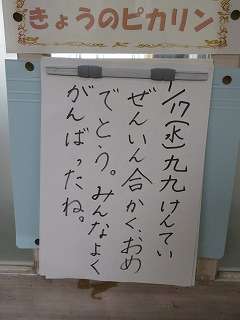 きょうのピカリン
1/17(水)九九けんてい
ぜんいん合かく、おめ
でとう。みんなよく
がんばったね。